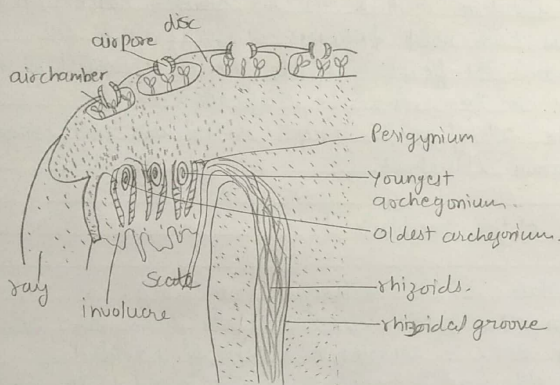 disc
air pore
air chamber
Perigynium
Youngest
archegonium
Oldest archegonium.
rhizoids.
rhizoidal groove
ray
involucre
Scale